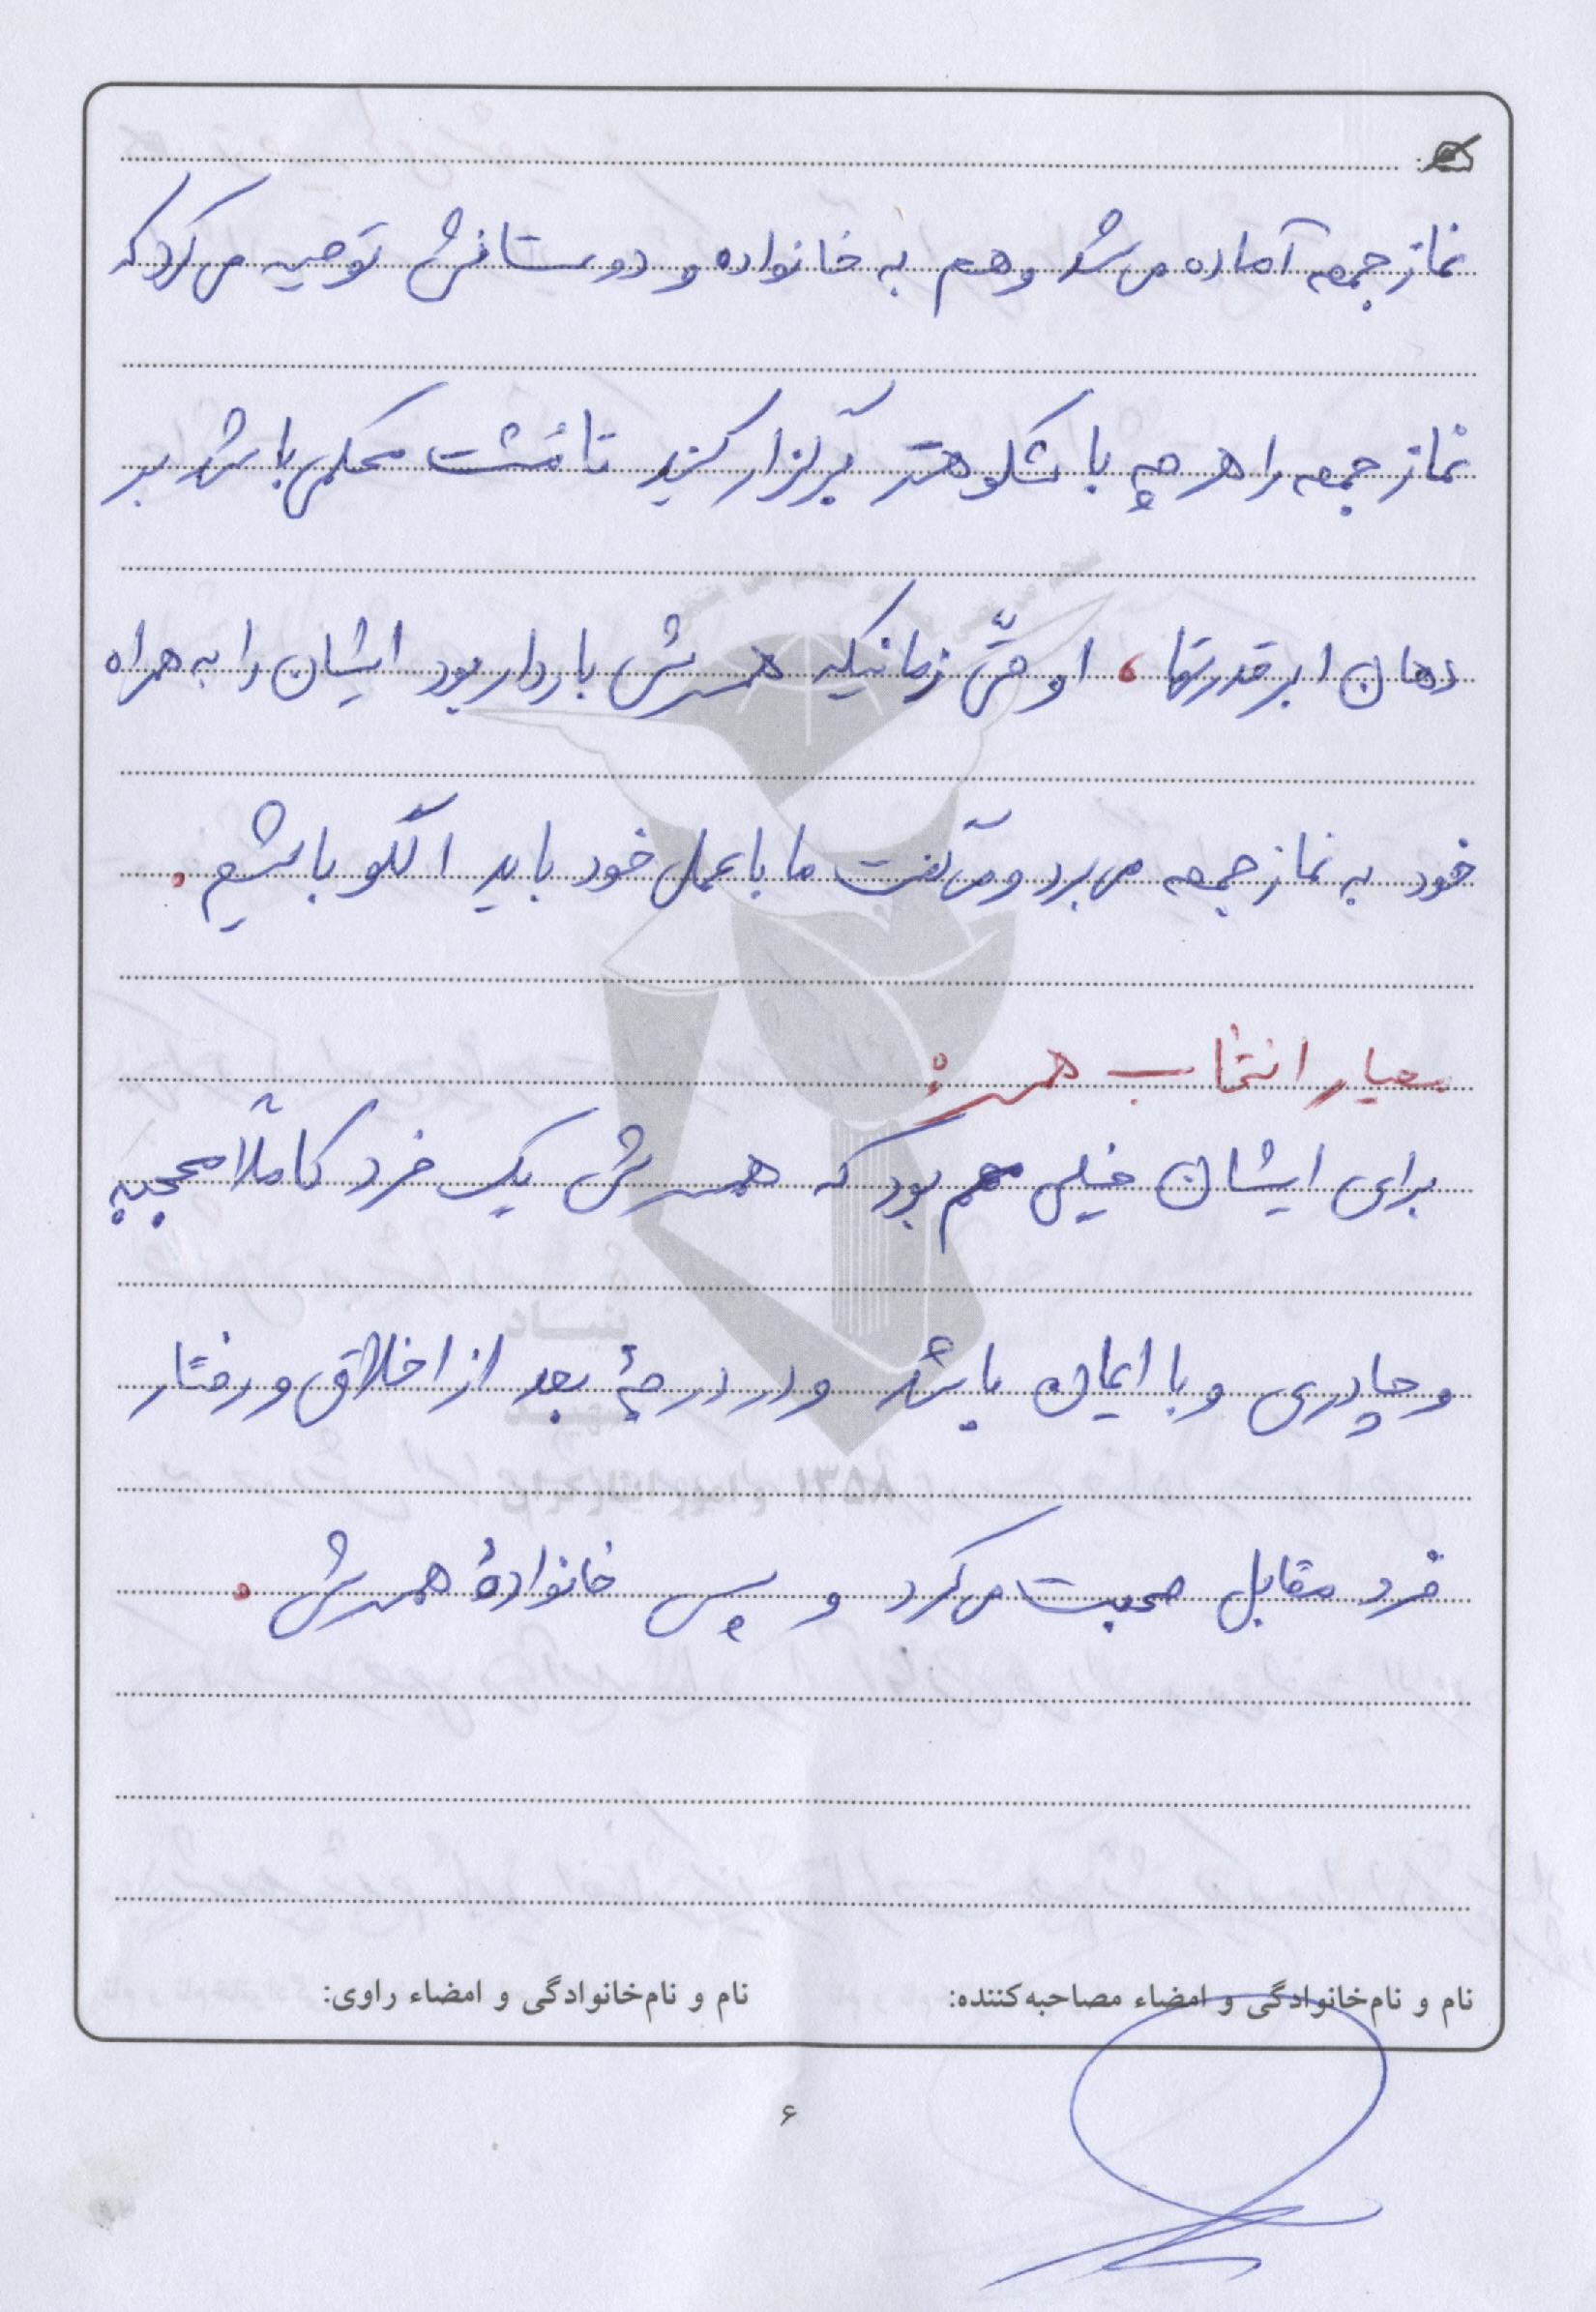 نماز جمعه آماده می شد و هم به خانواده و دوستانش توصیه می کرد که
نماز جمعه را هر چه با شکوهتر برگزار کنید تا مُشت محکمی باشد بر
دهان ابرقدرتها، او حتّی زمانیکه همسرش باردار بود ایشان را به همراه
خود به نماز جمعه می برد و می گفت ما با عمل خود باید الگو باشیم.
معیار انتخاب همسر:
برای ایشان خیلی مهم بود که همسرش یک فرد کاملاً محجبه
و چادری و با ایمان باشد و در درجهٔ بعد از اخلاق و رفتار
فرد مقابل صحبت می کرد و پس خانوادهٔ همسرش.
نام و نام‌خانوادگی و امضاء مصاحبه‌کننده: نام و نام‌خانوادگی و امضاء راوی:
۶
بنیاد
شهید
و امور ایثارگران ۱۳۵۸